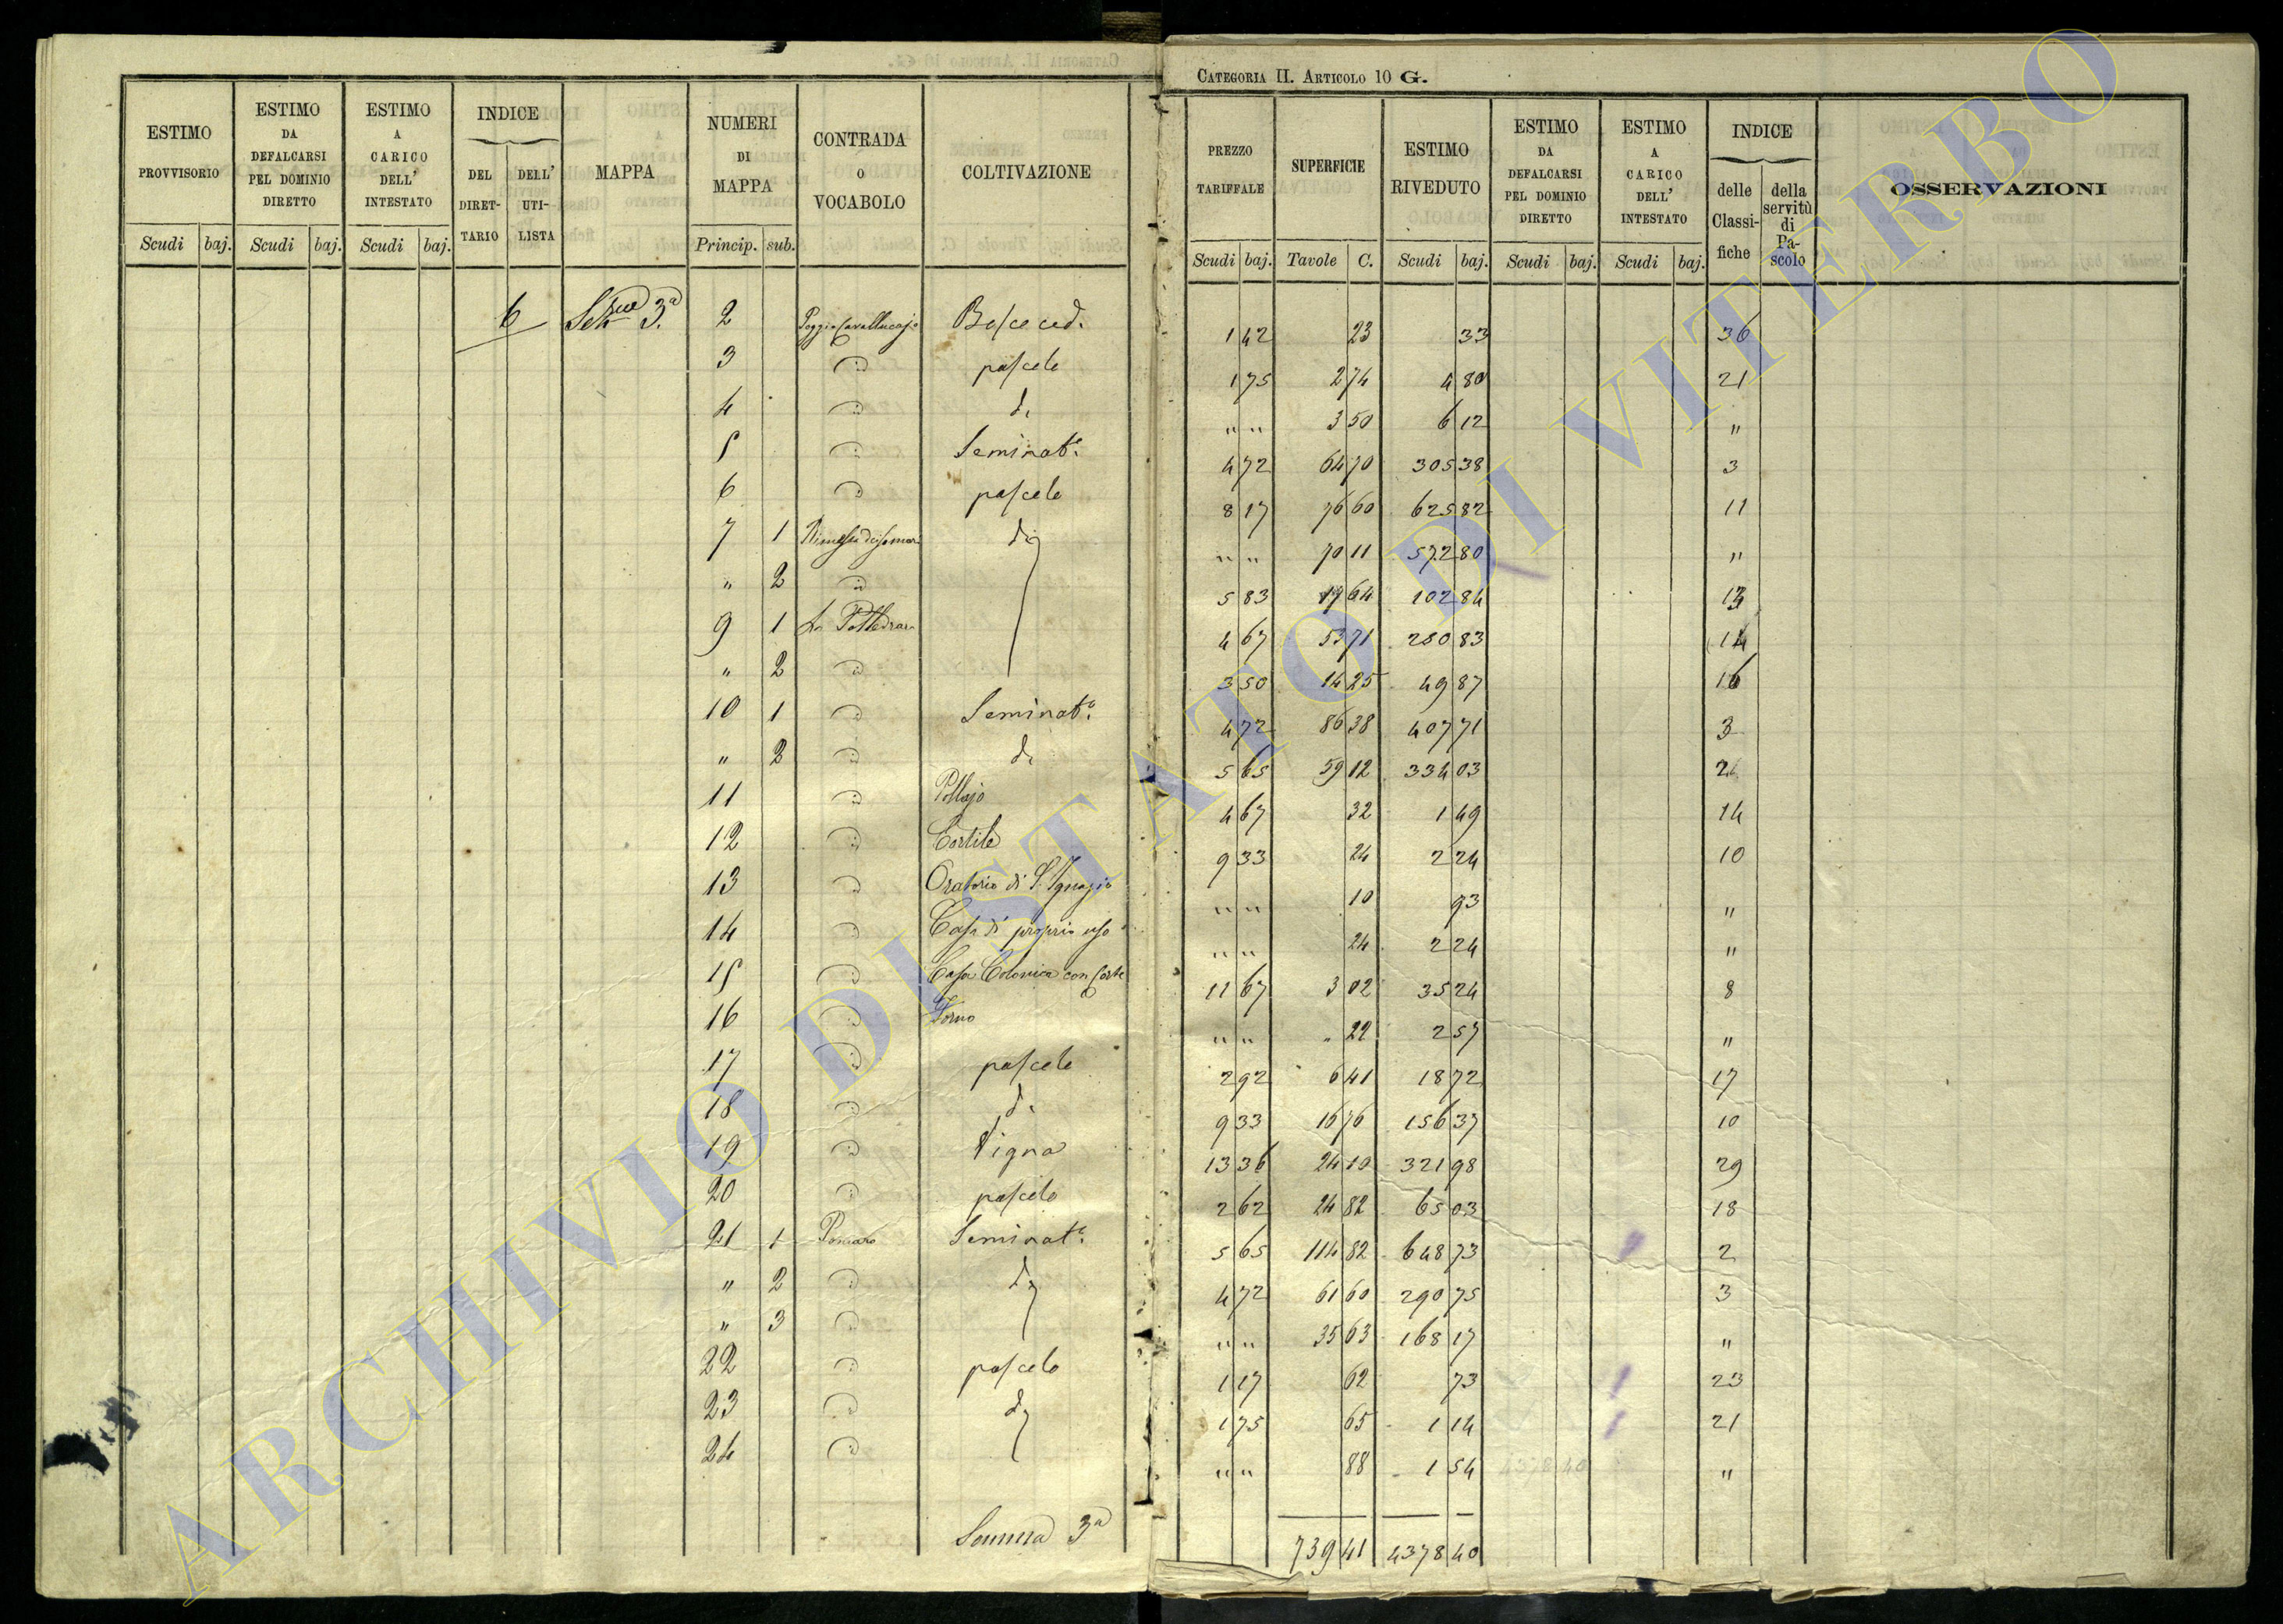 CATEGORIA II. ARTICOLO 10 G.
ESTIMO PROVVISORIO | ESTIMO DA DEFALCARSI PEL DOMINIO DIRETTO | ESTIMO A CARICO DELL' INTESTATO | INDICE DEL DIRETTARIO | DELL' UTILISTA | MAPPA | NUMERI DI MAPPA | CONTRADA O VOCABOLO | COLTIVAZIONE | PREZZO TARIFFALE | SUPERFICIE | ESTIMO RIVEDUTO | ESTIMO DA DEFALCARSI PEL DOMINIO DIRETTO | ESTIMO A CARICO DELL' INTESTATO | INDICE delle Classifiche | della servitù di Pascolo | OSSERVAZIONI
Scudi baj. | Scudi baj. | Scudi baj. | Princip. sub. | Scudi baj. | Tavole C. | Scudi baj. | Scudi baj. | Scudi baj.
6 3ª 2 Poggio Cavallucajo Bosco ced. 1 42 23 33 36
3 pascolo 1 75 2 74 4 80 21
4 d. " " 3 50 6 12 "
5 Seminat.º 4 72 64 70 305 38 3
6 pascolo 8 17 76 60 625 82 11
7 1 d. " " 70 11 572 80 "
" 2 5 83 17 64 102 84 13
9 1 La Polledrara 4 67 53 71 250 83 14
" 2 3 50 14 25 49 87 16
10 1 Seminat.º 4 72 86 38 407 71 3
" 2 d. 5 65 59 12 334 03 2
11 Pollajo 4 67 32 1 49 14
12 Cortile 9 33 24 2 24 10
13 Oratorio di S. Ignazio " " 10 93 "
14 Casa di proprio uso " " 24 2 24 "
15 Casa Colonica con Corte 11 67 3 02 35 24 8
16 Forno " " " 22 2 57 "
17 pascolo 2 92 6 41 18 72 17
18 d. 9 33 16 76 156 37 10
19 Vigna 13 36 24 10 321 98 29
20 pascolo 2 62 24 82 65 03 18
21 1 Pomaro Seminat.º 5 65 114 82 648 73 2
" 2 d. 4 72 61 60 290 75 3
" 3 " " 35 63 168 17 "
22 pascolo 1 17 62 73 23
23 d. 1 75 65 1 14 21
24 " " 88 1 54 "
4378 40
Somma 3ª 739 41 4378 40
ARCHIVIO DI STATO DI VITERBO